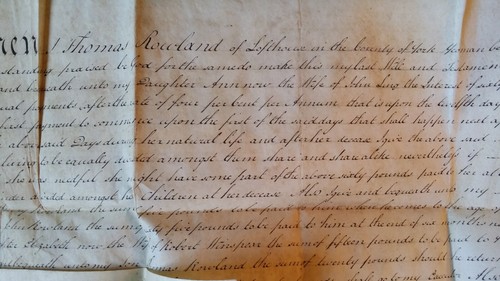 men I Thomas Rowland of Lofthouse in the County of York Yeoman be
standing praised be God for the same do make this my last Will and Testamen
and bequeath unto my Daughter Ann now the Wife of John Ling the Interest of sixty
ual payments after the rate of four per Cent per Annum that is upon the twelfth day
first payment to commence upon the first of the said days that shall happen next a
above said Days during her natural life and after her decease I give the above said
living to be equally divided amongst them share and share alike nevertheless if
she was needful she might have some part of the above sixty pounds paid to her at
der divided amongst her Children at her decease Also I give and bequeath unto my
Rowland the sum pounds to be paid to when he comes to the age
Rowland the sum of sixty five pounds to be paid to him at the end of six months ne
Elizabeth now the Wife of Robert the sum of fifteen pounds to be paid to
bequeath unto my Son Thomas Rowland the sum of twenty pounds should he return
go to my Executor Also